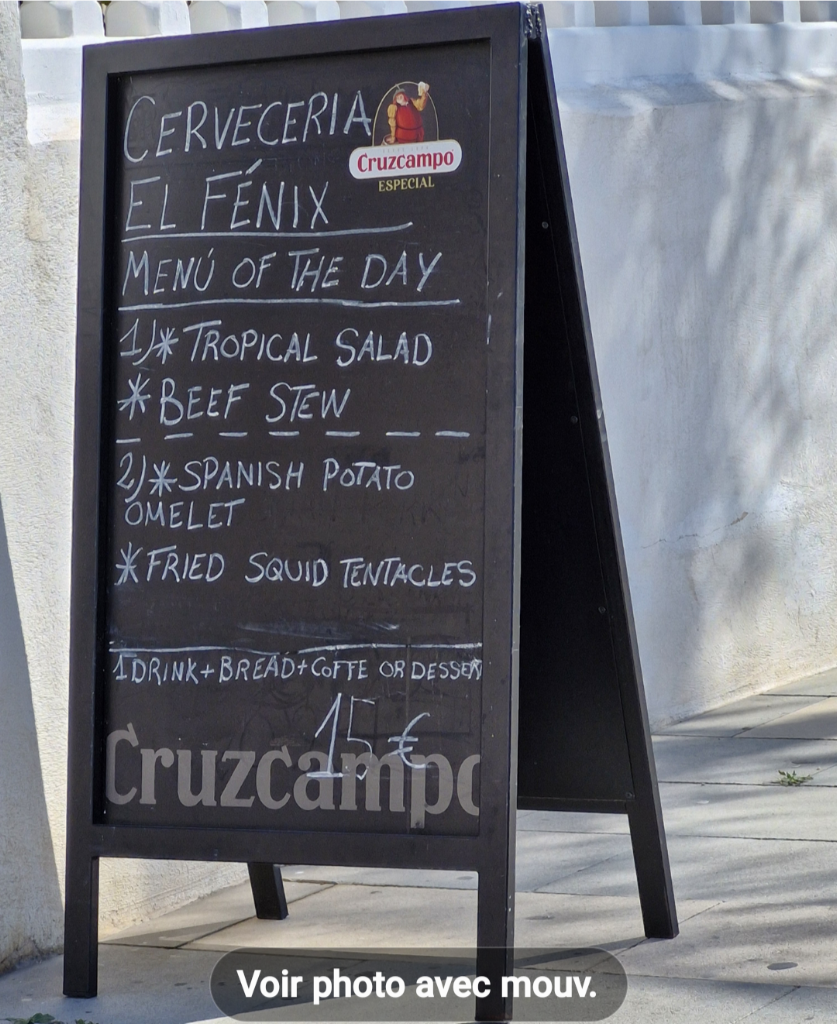 CERVECERIA
Cruzcampo
ESPECIAL
EL FÉNIX
MENÚ OF THE DAY
1)* TROPICAL SALAD
* BEEF STEW
2)* SPANISH POTATO
OMELET
* FRIED SQUID TENTACLES
1 DRINK + BREAD + COFFE OR DESSERT
15 €
Cruzcampo
Voir photo avec mouv.